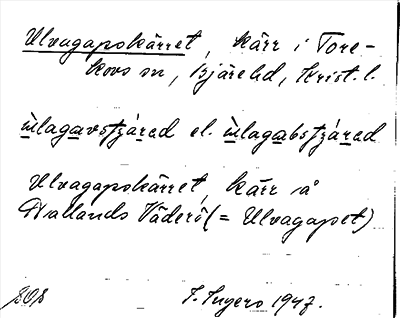 Ulvagapskärret, kärr i Tore-
kovs sn, Bjäre hd, Krist. l.
ùlagavstɟárad el. ùlagabstɟárad
Ulvagapskärret, kärr å
Hallands Väderö (= Ulvagapet)
I. Ingers 1947.